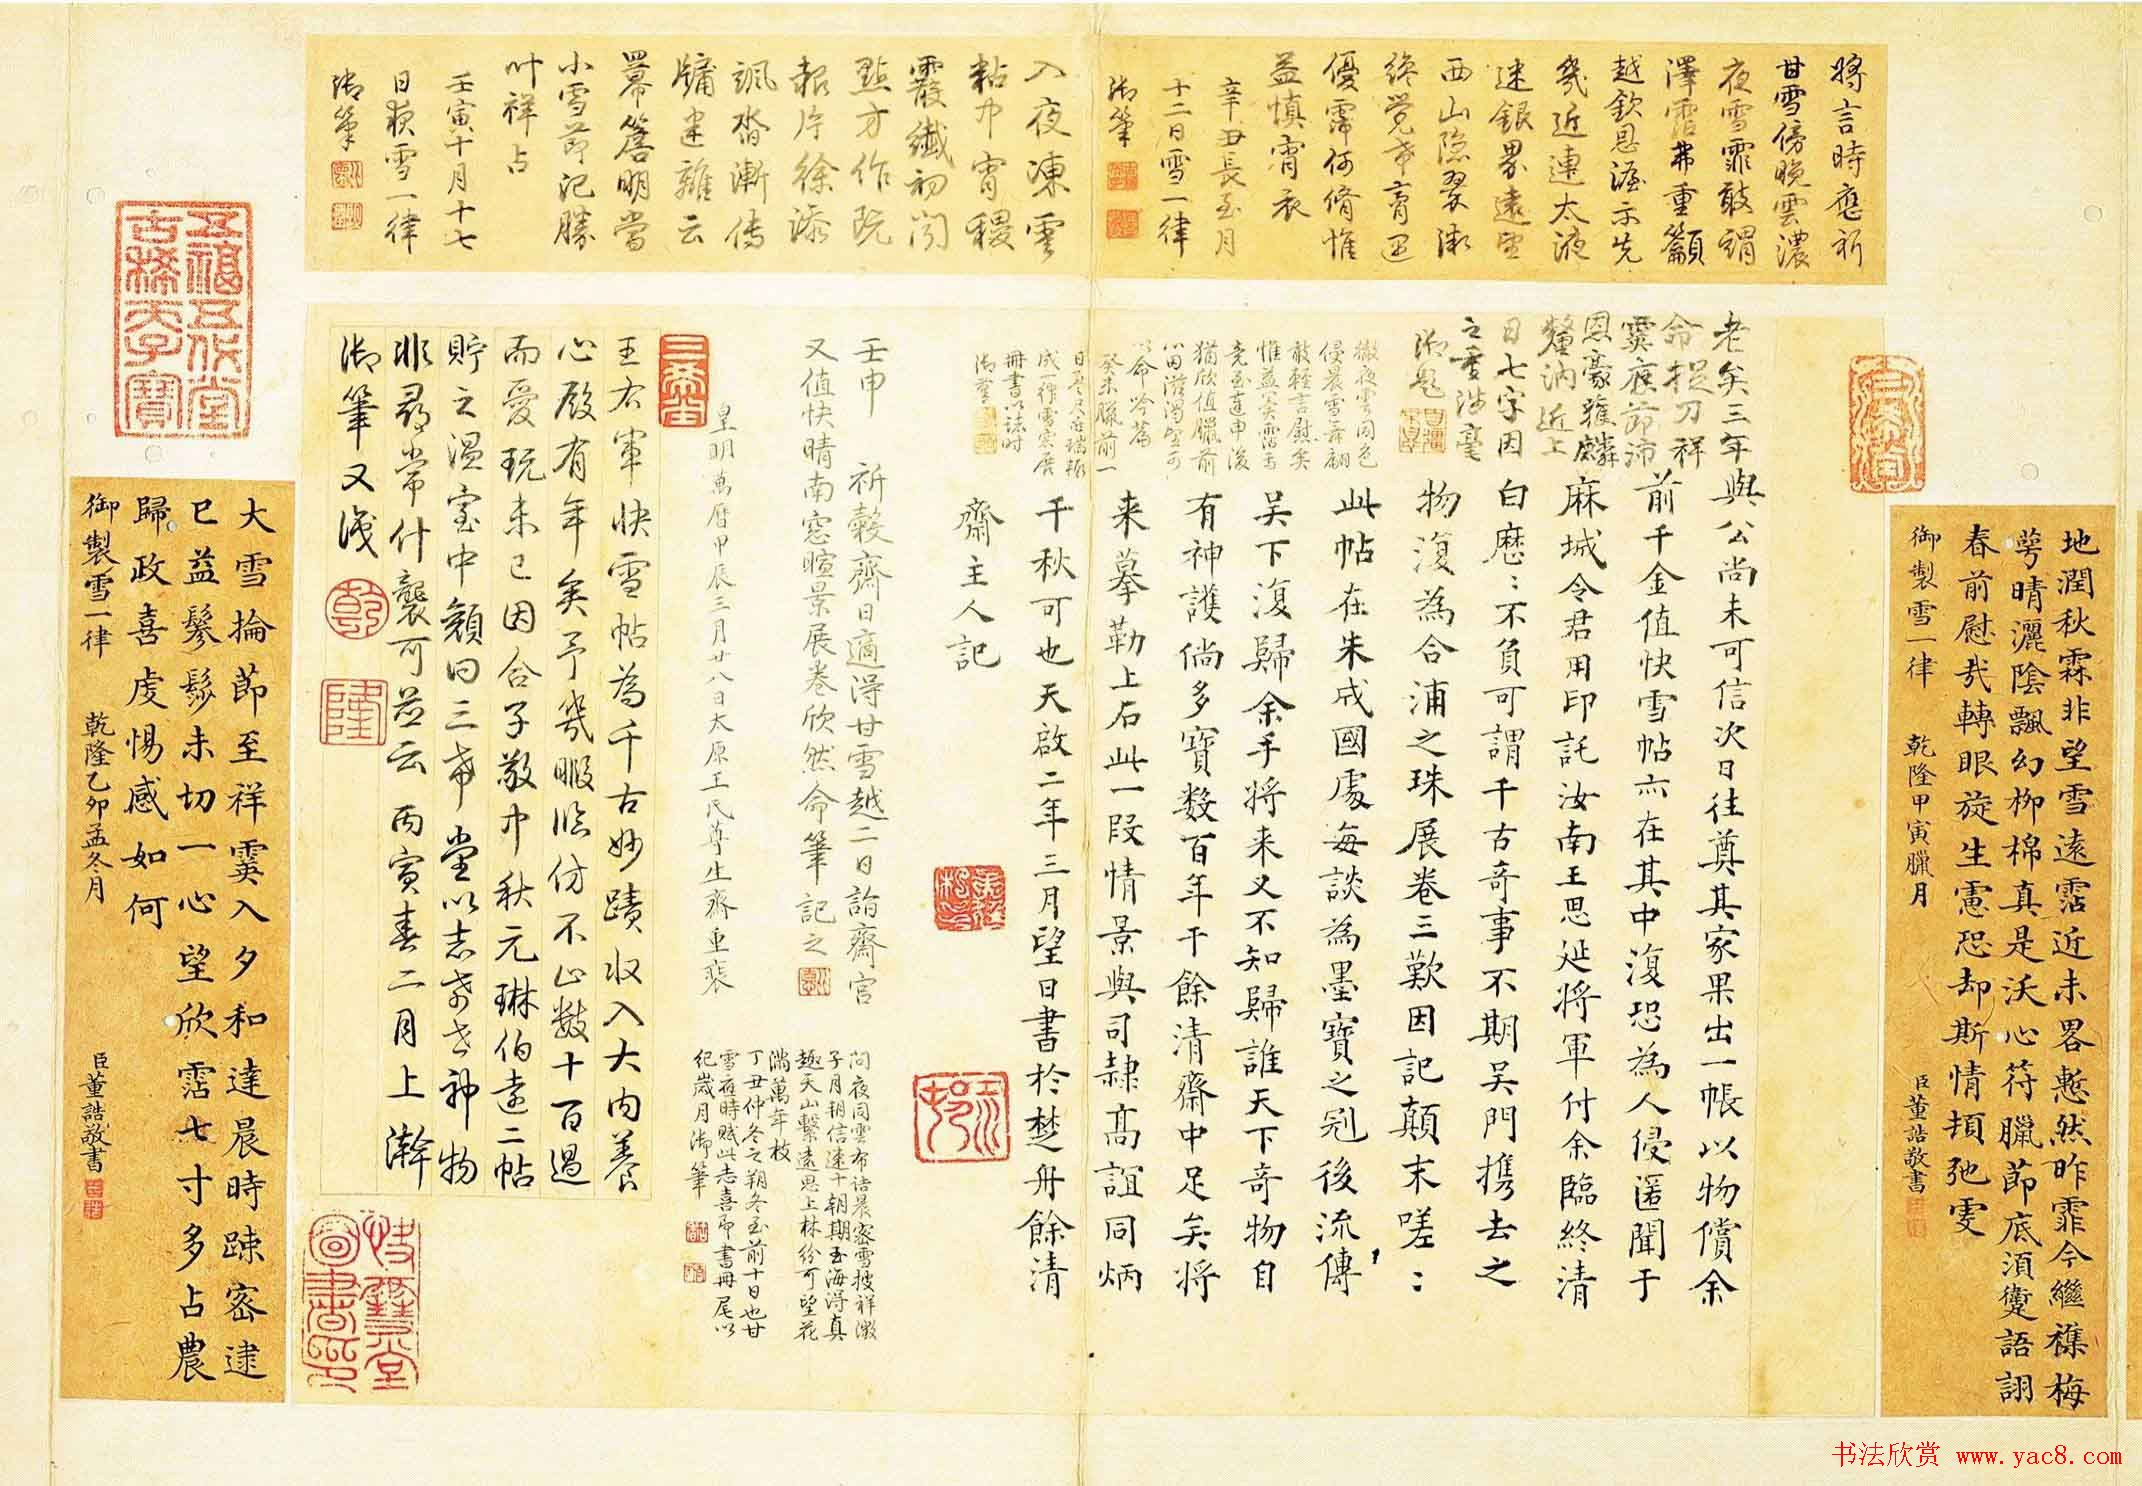 將言時應祈
甘雪傍晚雲濃
夜雪霏敢謂
澤霑弗重籲
越欽恩渥示先
幾近連太液
迷銀界遠望
西山隱翠微
終覺希育迴
優霈何脩惟
益慎宵衣
辛丑長至月
十二日雪二律
御筆
入夜凍雲
粘巾宵稷
霰纖初聞
點方作玩
報片徐添
颯沓漸傳
牖建難云
冪簷明當
小雪節記勝
叶祥占
壬寅十月十七
日夜雪一律
御筆
地潤秋霖非望雪遠霑近未畧慙然昨霏今繼襍梅
萼晴灑陰飄幻柳棉真是沃心符臘節底須蘷語詡
春前慰哉轉眼旋生憲恐却斯情損弛雯
御製雪一律 乾隆甲寅臘月
臣董誥敬書
老矣三年與公尚未可信次日往奠其家果出一帳以物償余
前千金值快雪帖亦在其中復恐為人侵匿聞于
麻城令君用印託汝南王思延將軍付余臨終清
白歷歷不負可謂千古奇事不期吳門携去之
物復為合浦之珠展卷三歎因記顛末嗟嗟
此帖在朱成國處每談為墨寶之冠後流傳
吳下復歸余手將来又不知歸誰天下奇物自
有神護倘多寶數百年于餘清齋中足矣將
来摹勒上石此一段情景與司隸高誼同炳
千秋可也天啟二年三月望日書於楚舟餘清
齋主人記
命提刀祥
霙應節沛
恩豪獲麟
釐沩近上
日七字因
之重涉毫
御題
徹夜雲同色
侵晨雪舞翩
敢輕言慰矣
惟益冀霑焉
堯至直申後
猶欣值臘前
心田滋渴望可
以命吟篇
癸未臘前一
日
成
冊書以誌時
御筆
壬申 祈穀齋日適得甘雪越二日詣齋宮
又值快晴南窓暄景展卷欣然命筆記之
皇明萬曆甲辰三月廿八日太原王氏尊生齋重裴
同夜同雲布詰晨密雪披祥徵
子月朔信速十朝期玉海得真
趣天山繫遠思上林紛可望花
滿萬年枝
丁丑仲冬之朔冬至前十日也甘
雪應時賦此志喜即書冊尾以
紀歲月御筆
王右軍快雪帖為千古妙蹟收入大內養
心殿有年矣予幾暇臨仿不止數十百過
而愛玩未已因合子敬中秋元琳伯遠二帖
貯之溫室中顏曰三希堂以志希世神物
非尋常什襲可並云丙寅春二月上澣
御筆又識
乾
隆
三希堂
快雪堂
圖書印
五福五代堂
古稀天子寶
大雪掄節至祥霙入夕和達晨時踈密逮
巳益鬖髿未切一心望欣霑七寸多占農
歸政喜虔惕感如何
御製雪一律 乾隆乙卯孟冬月
臣董誥敬書
书法欣赏 www.yac8.com